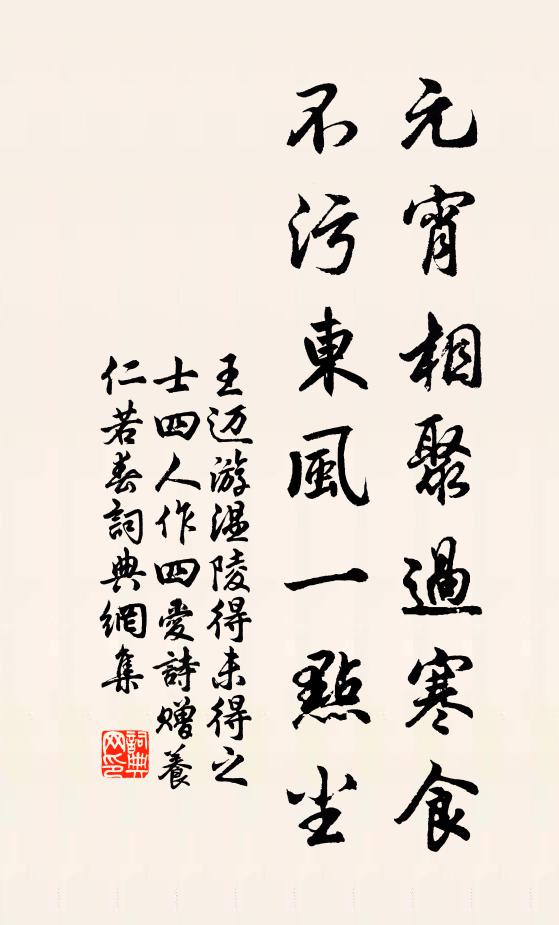 元宵相聚過寒食
不污東風一點尘
王迈游温陵得未得之
士四人作四爱詩赠養
仁若春詞典網集
詞典
网印